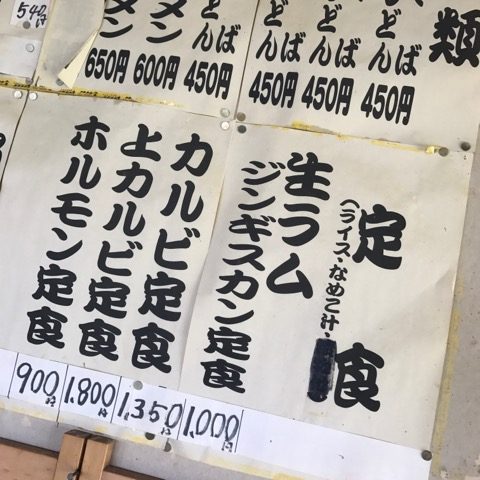 類
ば
どん
450円
ば
どん
450円
ば
どん
450円
ば
どん
450円
メン
600円
メン
650円
540円
定食
(ライス・なめこ汁・
生ラム
ジンギスカン定食
1,000円
カルビ定食
1,350円
上カルビ定食
1,800円
ホルモン定食
900円